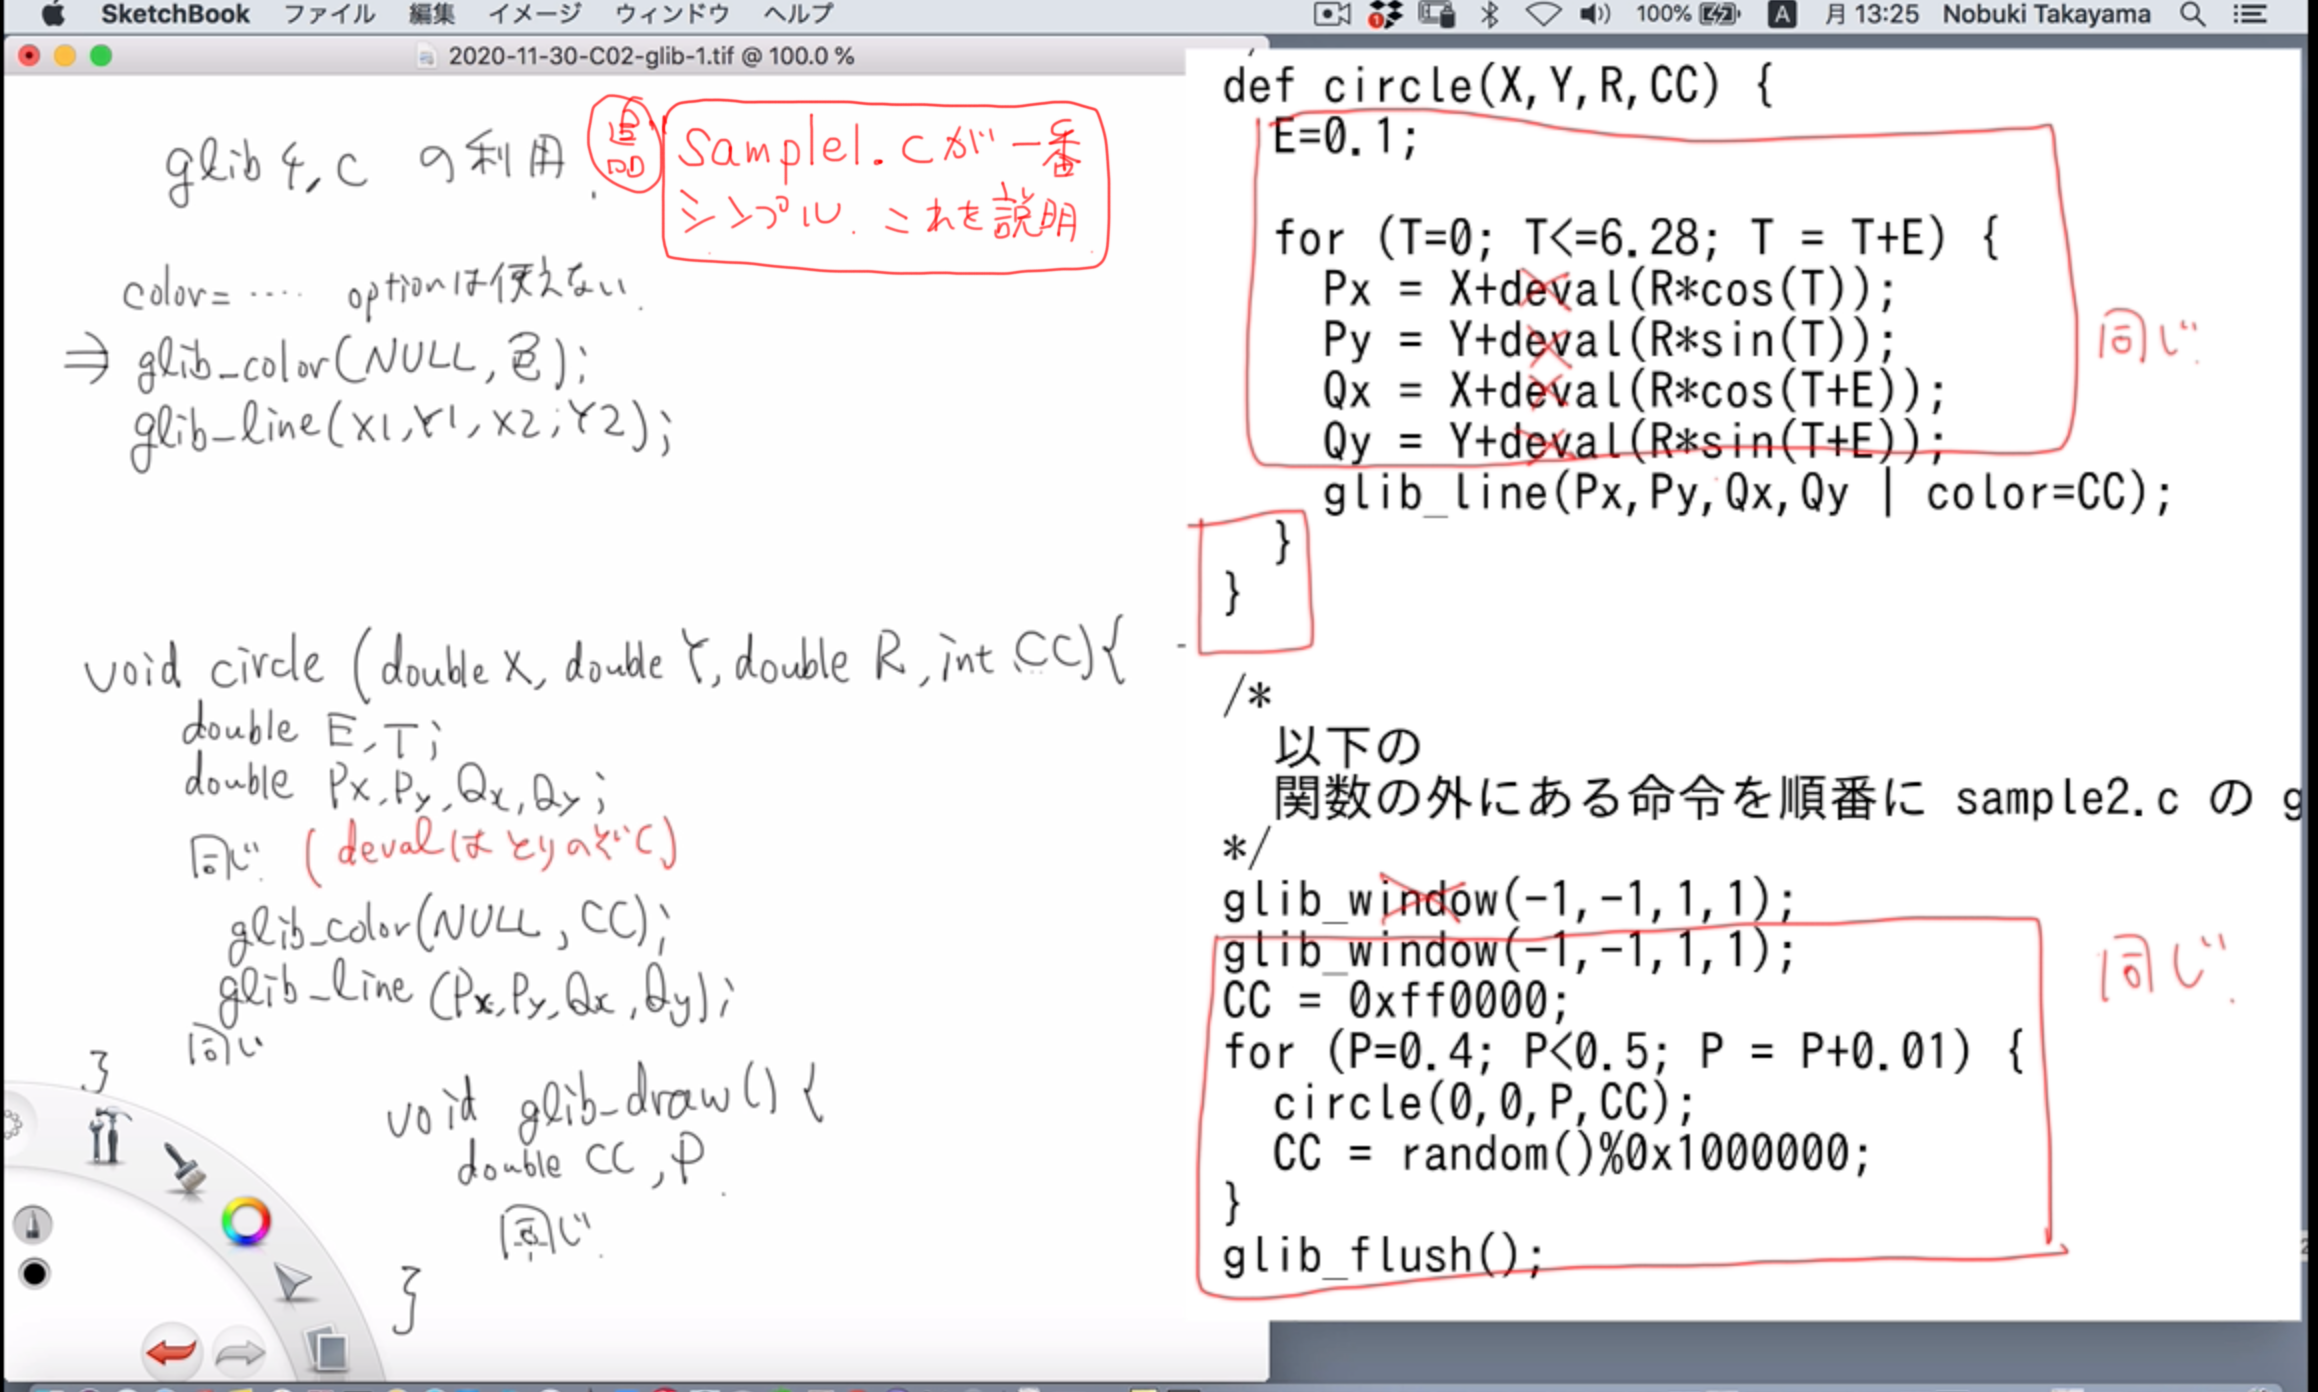 SketchBook ファイル 編集 イメージ ウィンドウ ヘルプ 100% A 月 13:25 Nobuki Takayama
2020-11-30-C02-glib-1.tif @ 100.0 %
glib4.c の利用.
追加
sample1.cが一番
シンプル. これを説明
color= ..... optionは使えない.
⇒ glib_color(NULL,色);
glib_line(x1,Y1,x2,Y2);
void circle (double X, double Y, double R, int CC){
double E,T;
double Px,Py,Qx,Qy;
同じ. (devalはとりのぞく)
glib_color(NULL,CC);
glib_line(Px,Py,Qx,Qy);
同じ
}
void glib_draw() {
double CC,P.
同じ.
}
def circle(X,Y,R,CC) {
E=0.1;
for (T=0; T<=6.28; T = T+E) {
Px = X+deval(R*cos(T));
Py = Y+deval(R*sin(T));
Qx = X+deval(R*cos(T+E));
Qy = Y+deval(R*sin(T+E));
同じ.
glib_line(Px,Py,Qx,Qy | color=CC);
}
}
/*
以下の
関数の外にある命令を順番に sample2.c の g
*/
glib_window(-1,-1,1,1);
glib_window(-1,-1,1,1);
同じ.
CC = 0xff0000;
for (P=0.4; P<0.5; P = P+0.01) {
circle(0,0,P,CC);
CC = random()%0x1000000;
}
glib_flush();